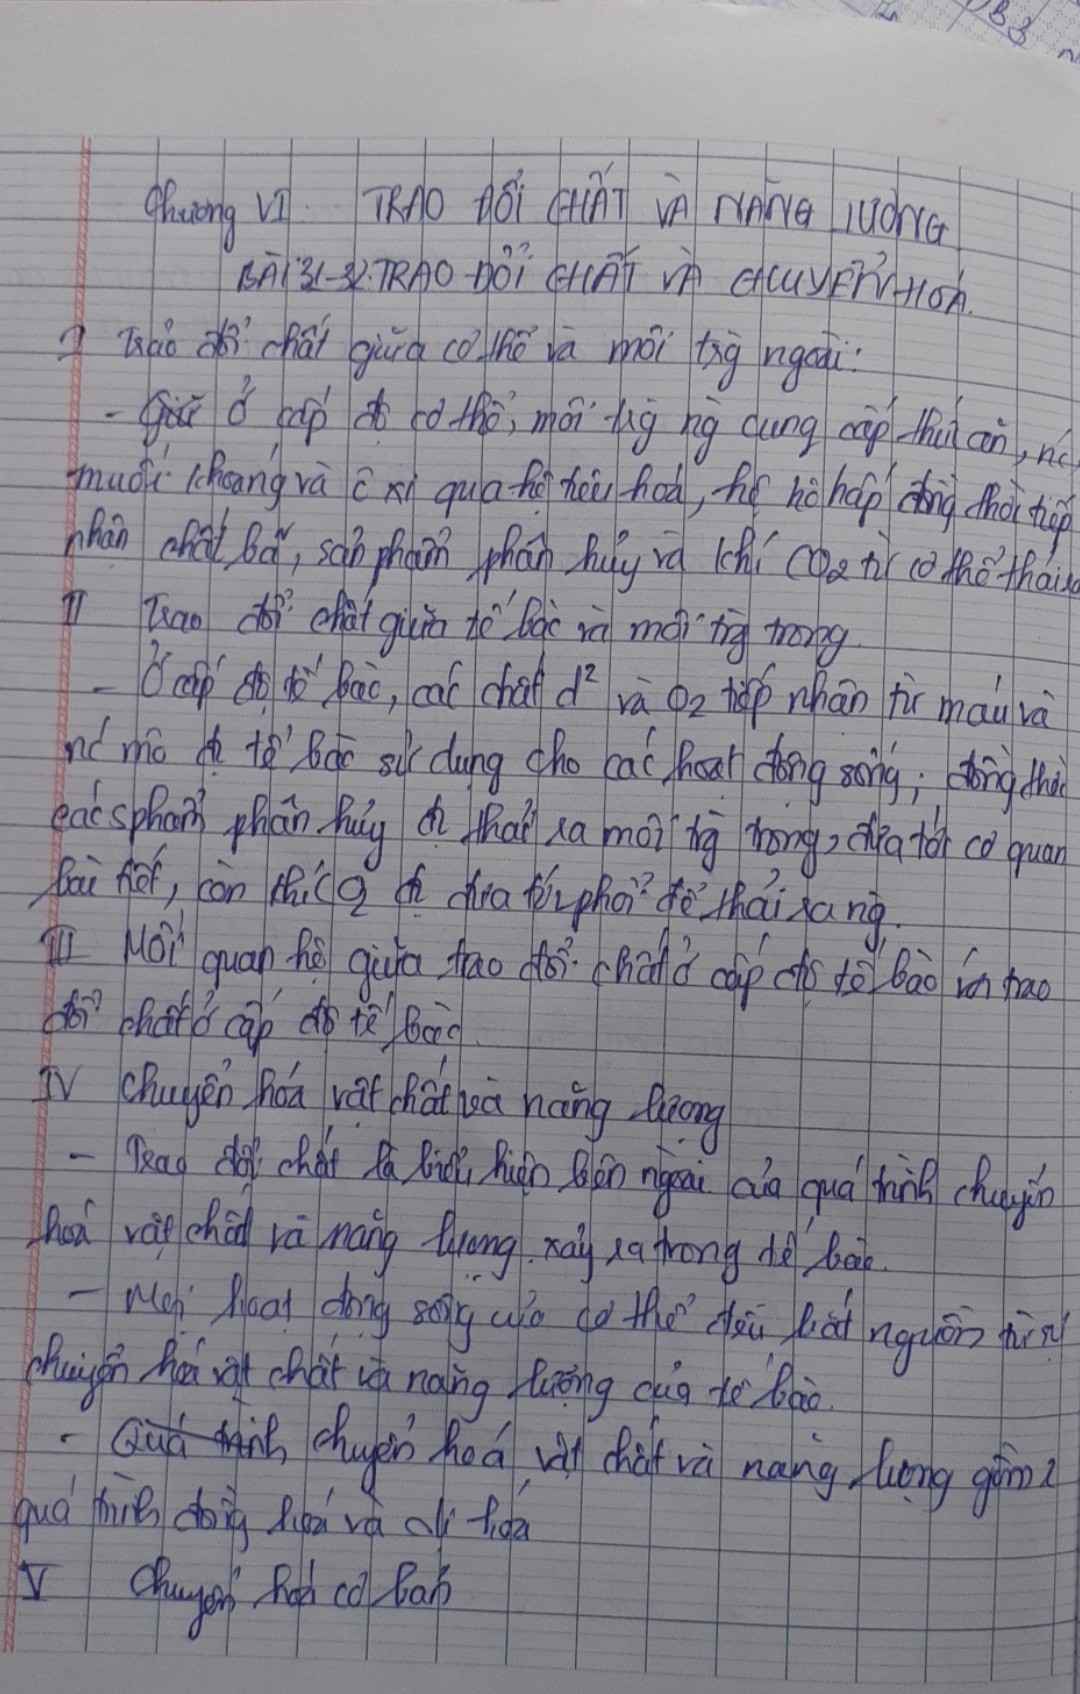 Chương VI. TRAO ĐỔI CHẤT VÀ NĂNG LƯỢNG
BÀI 31-32: TRAO ĐỔI CHẤT VÀ CHUYỂN HÓA.
I Trao đổi chất giữa cơ thể và môi trg ngoài:
- ở cấp độ cơ thể, môi trg ng cung cấp thức ăn, nc,
muối khoáng và ô xi qua hệ tiêu hoá, hệ hô hấp đồng thời tiếp
nhận chất bã, sản phẩm phân hủy và khí CO2 từ cơ thể thải ra
II Trao đổi chất giữa tế bào và môi trg trong
- Ở cấp độ tế bào, các chất d² và O2 tiếp nhận từ máu và
nc mô đc tế bào sử dụng cho các hoạt động sống; đồng thời
các sphẩm phân hủy đc thải ra môi trg trong, đưa tới cơ quan
bài tiết, còn đc đưa tới phổi để thải ra ng.
III Mối quan hệ giữa trao đổi chất ở cấp độ tế bào và trao
đổi chất ở cấp độ tế bào
IV Chuyển hóa vật chất và năng lượng
- Trao đổi chất là biểu hiện bên ngoài của quá trình chuyển
hoá vật chất và năng lượng xảy ra trong tế bào.
- Mọi hoạt động sống của cơ thể đều bắt nguồn từ sự
chuyển hoá vật chất và năng lượng của tế bào.
- Quá trình chuyển hoá vật chất và năng lượng gồm 2
quá trình đồng hóa và dị hóa
V Chuyển hoá cơ bản